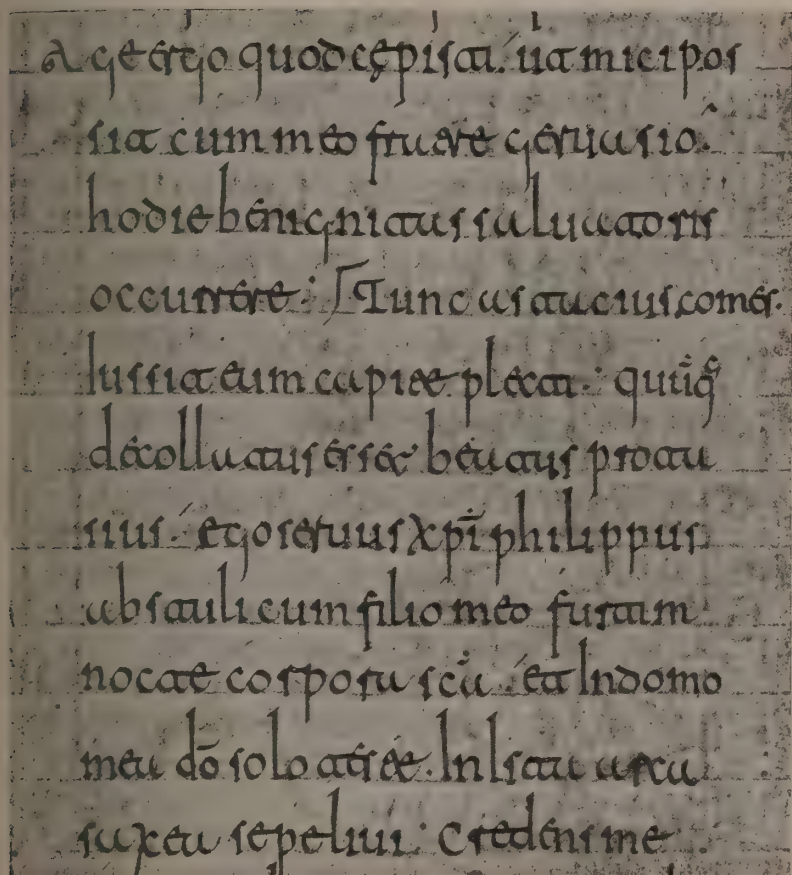 Age ergo quod cępisti. ut mici pos
sit cum meo fruere geruasio.
hodie benignitas saluatoris
occurrere. Tunc astatius comes.
Iussit eum capite plecti. quūq;
decollatus esset beatus prota
sius. ego seruus xpī philippus
abstuli cum filio meo furtim
nocte corpora scā. et In domo
mea dō solo teste. In Ista arca
saxea sepeliui. Credens me